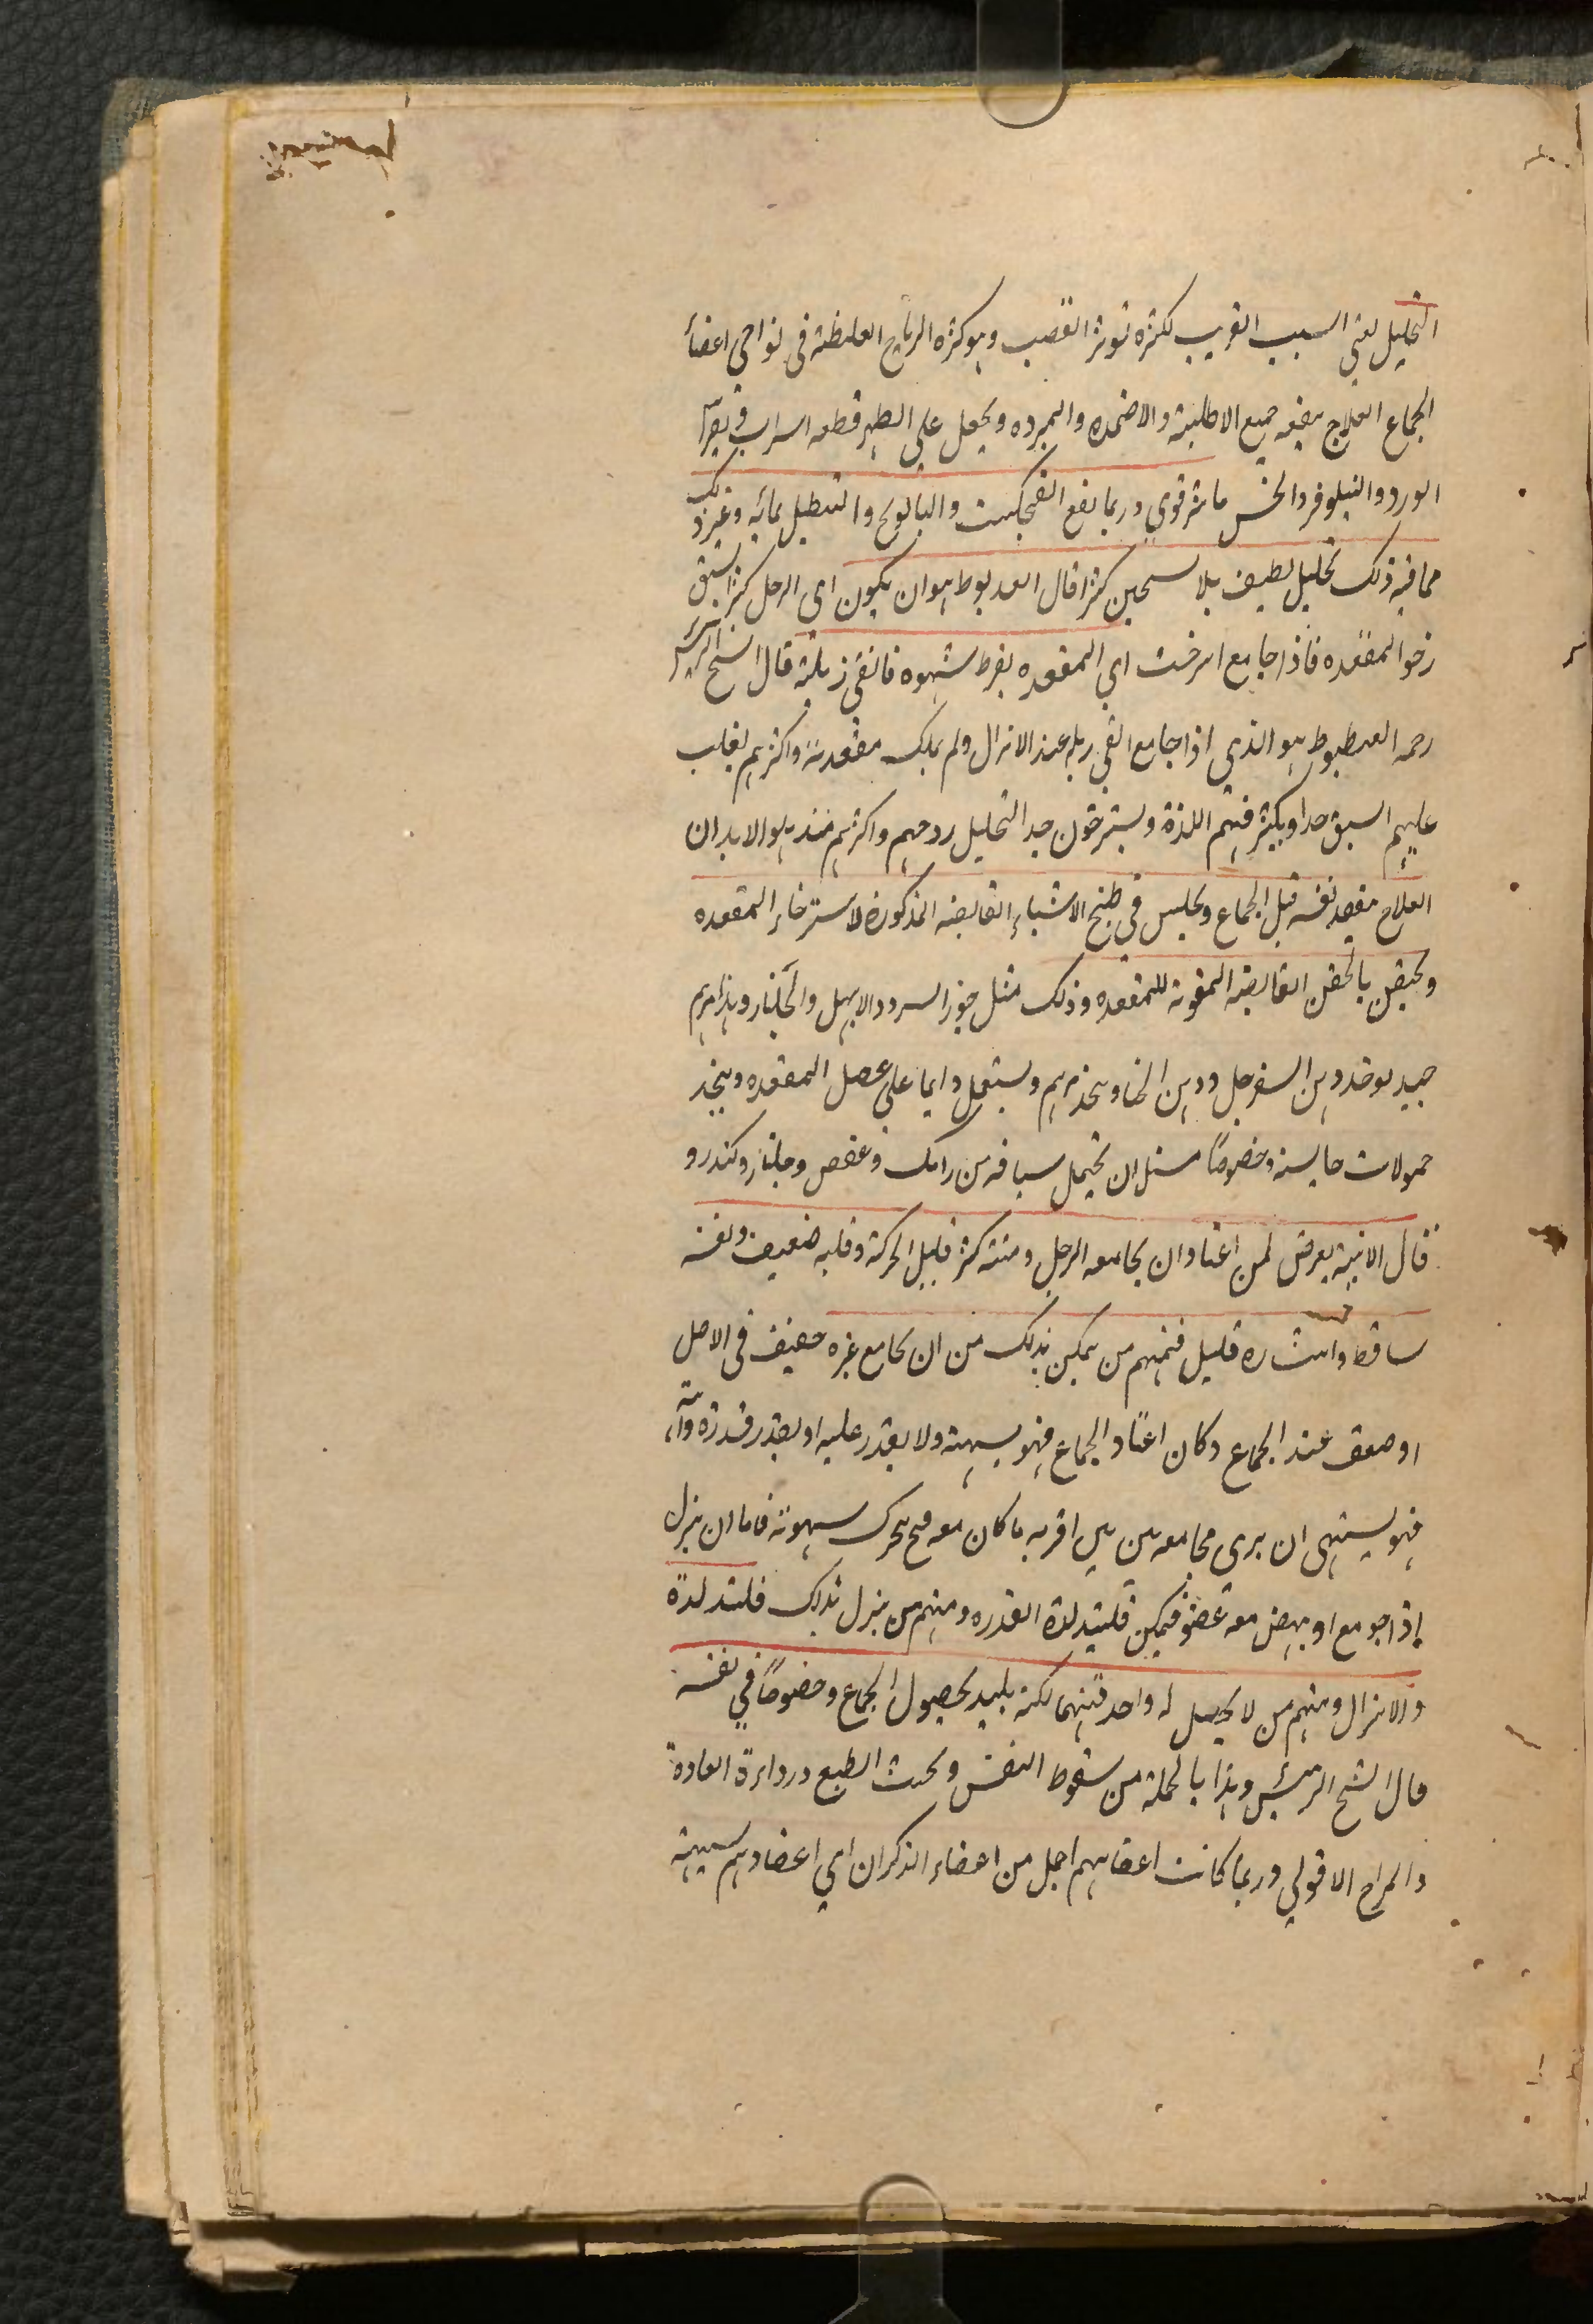 التحليل يعني السبب القريب لكثرة توتر القضيب وهو كثرة الرياح الغليظة في نواحي اعضأ
الجماع العلاج ينفعه جميع الاطلية والاضمده والمبرده ويجعل على الظهر قطعه اسرب
الورد والنيلوفر والخس ماثر قوي وربما نفع الفنجنكشت والبابونج والتنطيل بمائه وغير ذلك
مما فيه ذلك تحليل لطيف بلا تسخين كثير قال العديوط هو ان يكون اي الرجل كثير الشبق
رخو المقعده فاذا جامع استرخت اي المقعده بفرط شهوه فالقي زبلته قال الشيخ الرئيس
رحمه العطيوط هو الذي اذا جامع القي زبله عند الانزال ولم يملك مقعدته واكثرهم يغلب
عليهم السبق جدا ويكثر فيهم اللذة ويسترخون جيد التحليل روحهم واكثرهم مترهلوا الابدان
العلاج يتفقد نفسه قبل الجماع ويجلس في طبخ الاشياء القابضه المذكورة لاسترخاء المقعده
ويحتقن بالحقن القابضه المقويه للمقعده وذلك مثل جوز السرو والابهل والجلنار وهذا مرهم
جيد يوخذ دهن السفرجل ودهن الحنا ويتخذ مرهم ويستعمل دايما على عضل المقعده ويتخذ
حمولات حابسه وخصوصًا مثل ان يحتمل سيافه من رامك وعفص وجلنار وكندر و
قال الابنه يعرض لمن اعتاد ان يجامعه الرجل ومنيه كثير قليل الحركة وقلبه ضعيف ونفسه
ساقط وانتشاره قليل فمنهم من يمكن بذلك من ان يجامع غيره ضعيف في الاصل
او ضعف عند الجماع وكان اعتاد الجماع فهو يشتهيه ولا يقدر عليه او يقدر قدرة واهية
فهو يشتهي ان يرى مجامعه بين اثنين اقربه ما كان معه فح يتحرك شهوته فاما ان ينزل
اذا جومع او ينهض معه عضو فيمكن فليتذ لذة القدره ومنهم من ينزل بذلك فلتذ لذة
والانزال ومنهم من لا يحصل له واحد منهما لكنه يلتذ بحصول الجماع وخصوصًا في نفسه
قال الشيخ الرئيس وهذا بالجمله من سقوط النفس وخبث الطبع ورداءة العادة
والمزاج الانثوي وربما كانت اعضاهم اجل من اعضاء الذكران اي اعضاوهم